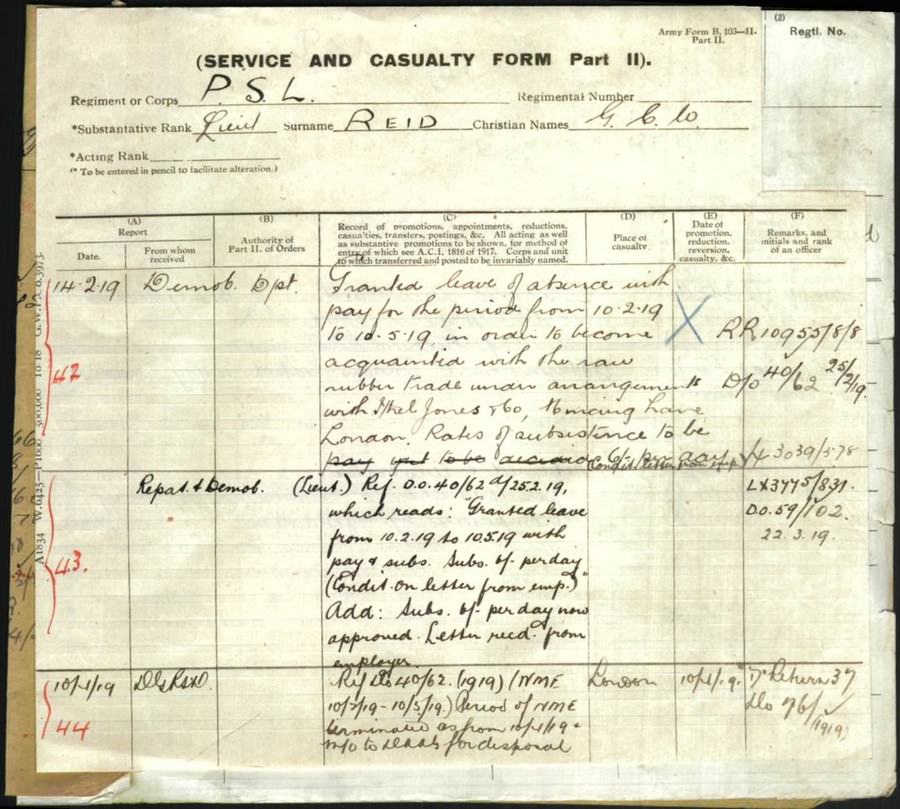 Army Form B. 103—II.
Part II.
(2)
Regtl. No.
(SERVICE AND CASUALTY FORM Part II).
Regiment or Corps P. S. L. Regimental Number
*Substantative Rank Lieut Surname REID Christian Names G. C. W.
*Acting Rank
(* To be entered in pencil to facilitate alteration.)
(A)
Report
Date.
From whom received
(B)
Authority of Part II. of Orders
(C)
Record of promotions, appointments, reductions,
casualties, transfers, postings, &c. All acting as well
as substantive promotions to be shown, for method of
entry of which see A.C.I. 1816 of 1917. Corps and unit
to which transferred and posted to be invariably named.
(D)
Place of casualty.
(E)
Date of promotion, reduction, reversion, casualty, &c.
(F)
Remarks, and initials and rank of an officer
14.2.19 Demob. Dpt.
Granted leave of absence with
pay for the period from 10.2.19
to 10.5.19, in order to become
acquainted with the raw
rubber trade under arrangements
with Jones & Co, Mincing
London. Rates of subsistence to be
pay to be 6/- per day
Condit. letter from emp.
X
RR 10955/8/8
D/o 40/62 25/2/19.
3039/578
42
43.
Repat. & Demob.
(Lieut.) Ref. D.O. 40/62 d/25.2.19,
which reads: "Granted leave
from 10.2.19 to 10.5.19 with
pay & subs. Subs. 6/- per day
(Condit. on letter from emp.)"
Add: Subs. 6/- per day now
approved. Letter recd. from
employer.
LX3775/831.
D.O. 59/102.
22.3.19.
44
10/4/19
Ref Do 40/62. (1919) (NME
10/2/19 - 10/5/19.) Period of NME
terminated as from 10/4/19 &
for disposal
London 10/4/19. Return 37
Do 76/
(1919)
A1834 W.6425—P1600 500,000 10-18 G.W.P.